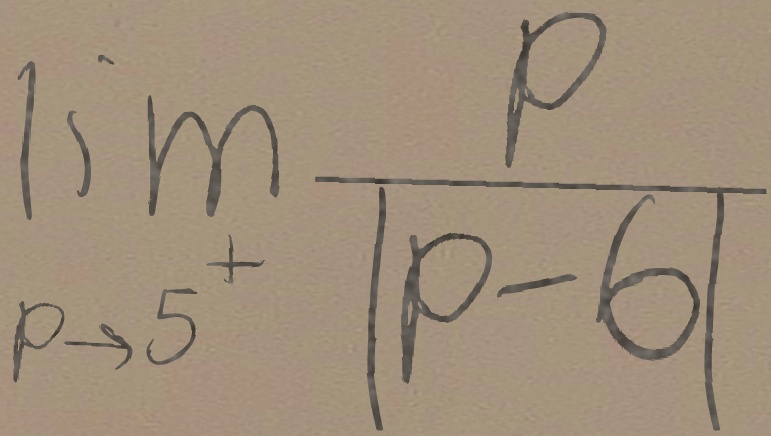 lim p→5⁺ p / |p − 6|